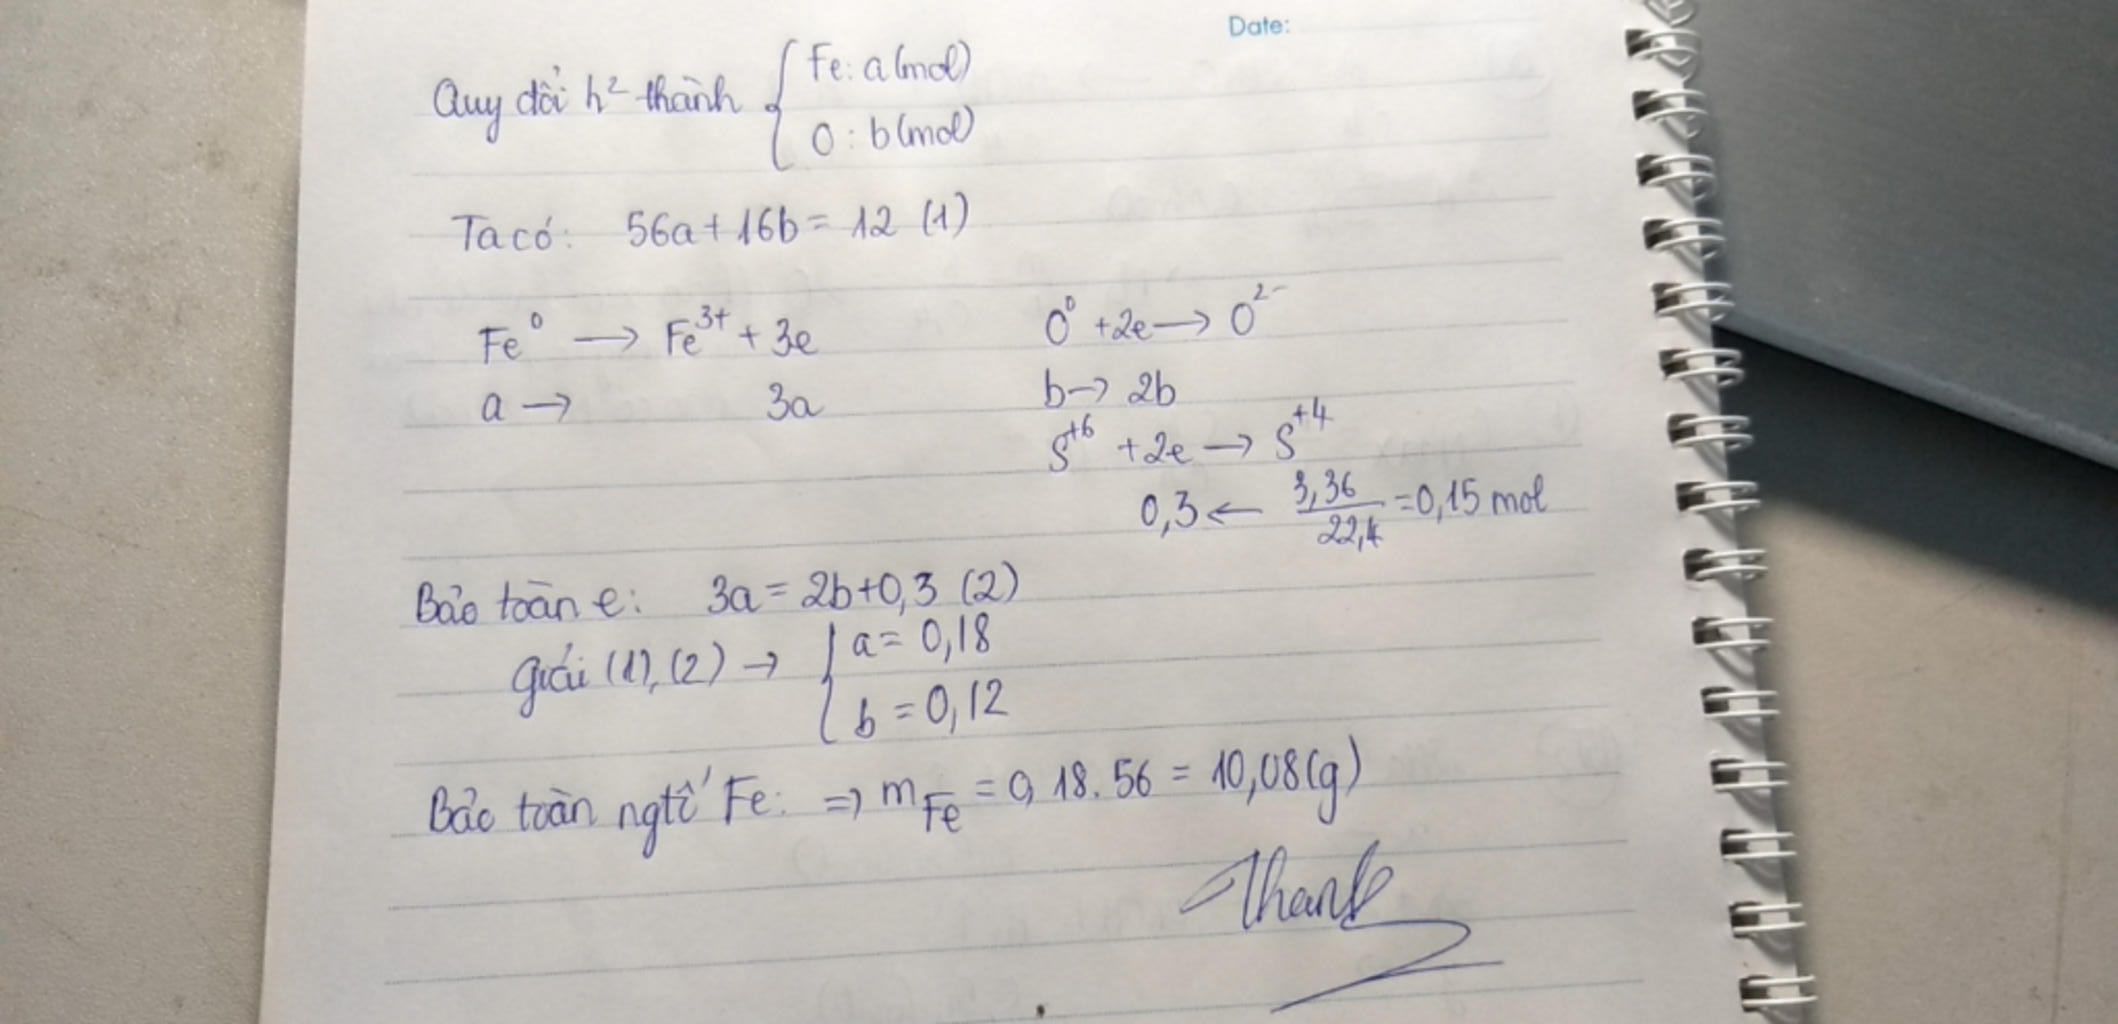 Date:
Quy đổi h² thành { Fe: a (mol)
O: b (mol)
Ta có: 56a + 16b = 12 (1)
Fe⁰ → Fe³⁺ + 3e
a → 3a
O⁰ + 2e → O²⁻
b → 2b
S⁺⁶ + 2e → S⁺⁴
0,3 ← 3,36/22,4 = 0,15 mol
Bảo toàn e: 3a = 2b + 0,3 (2)
Giải (1), (2) → { a = 0,18
b = 0,12
Bảo toàn ngtố Fe: => m_Fe = 0,18.56 = 10,08 (g)
Thanh